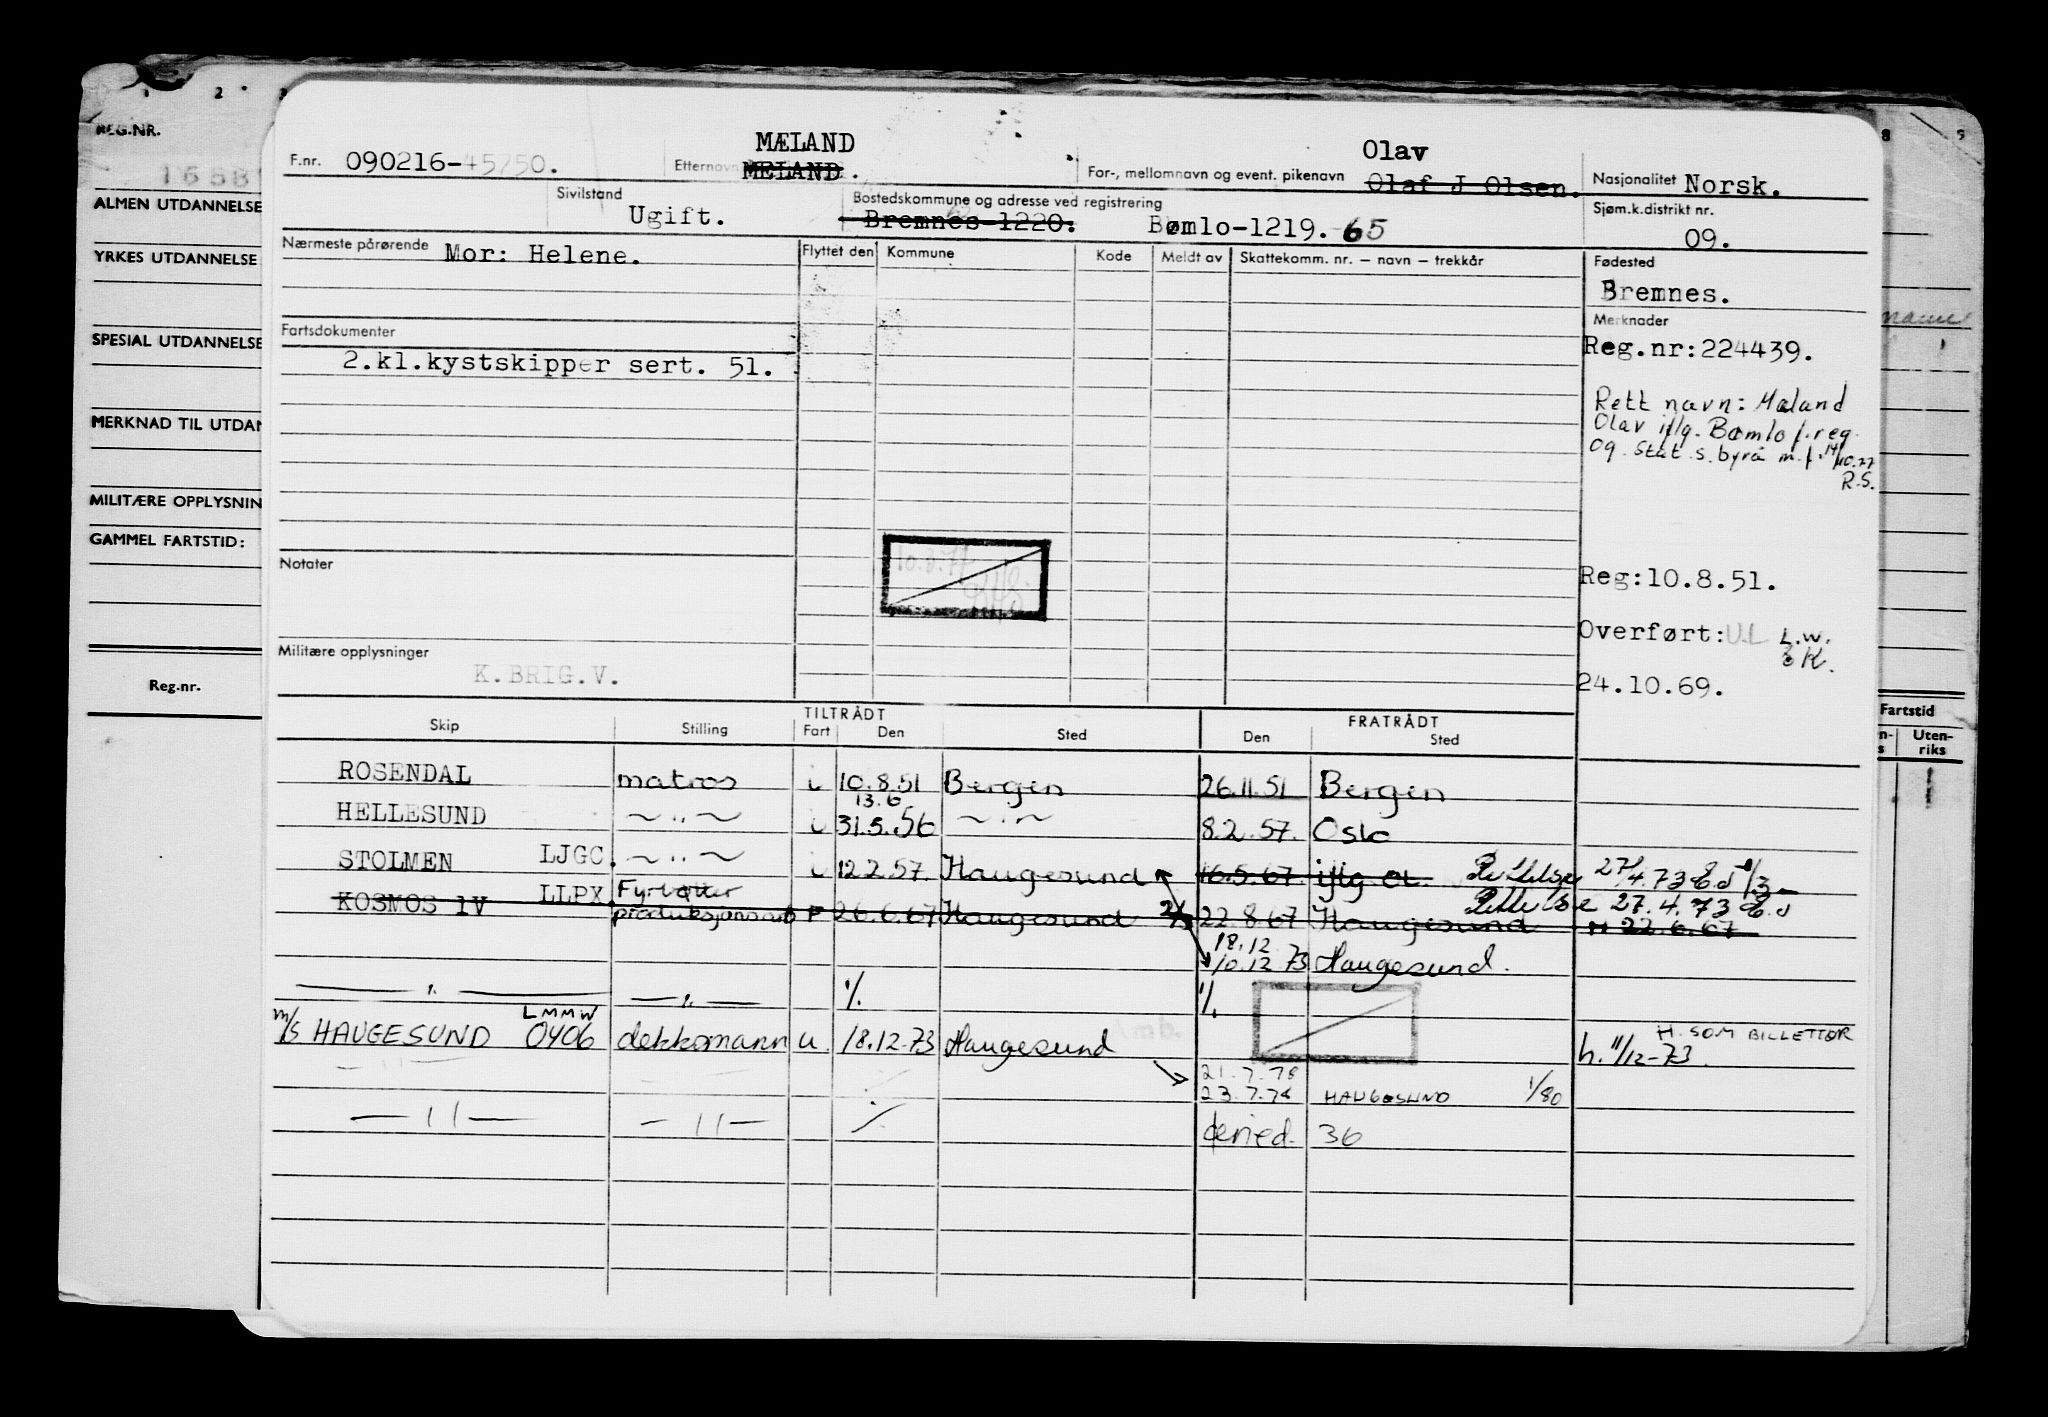 1 2 3 8 9
REG.NR.
ALMEN UTDANNELSE
YRKES UTDANNELSE
SPESIAL UTDANNELSE
MERKNAD TIL UTDAN
MILITÆRE OPPLYSNIN
GAMMEL FARTSTID:
Reg.nr.
MÆLAND Olav
F.nr. 090216-45750. Etternavn MELAND. For-, mellomnavn og event. pikenavn Olaf J Olsen. Nasjonalitet Norsk.
Sivilstand Ugift. Bostedskommune og adresse ved registrering Bremnes-1220. Bømlo-1219. 65 Sjøm.k.distrikt nr. 09.
Nærmeste pårørende Mor: Helene. Flyttet den Kommune Kode Meldt av Skattekomm. nr. – navn – trekkår Fødested
Bremnes.
Merknader
Fartsdokumenter
2.kl.kystskipper sert. 51.
Reg.nr:224439.
Rett navn: Mæland
Olav iflg. Bømlo f.reg.
og stat.s.byrå m.f. 14/10.77
R.S.
Notater
Reg:10.8.51.
Overført: L.W.
K.
24.10.69.
Militære opplysninger
K.BRIG.V.
TILTRÅDT FRATRÅDT
Skip Stilling Fart Den Sted Den Sted
Fartstid
Uten-
riks
ROSENDAL matros i 10.8.51 Bergen 26.11.51 Bergen
13.6
HELLESUND —"— i 31.5.56 —"— 8.2.57. Oslo
STOLMEN LJGC. —"— i 12.2.57. Haugesund 16.5.67. iflg Rettelse 27/4.73
KOSMOS 1V LLPX. Fyrbøter produksjons F 26.6.67 Haugesund 22.8.67 Haugesund Rettelse 27.4.73
M 22.6.67
18.12
10.12 73 Haugesund.
—"— —"— %. %.
m/s HAUGESUND LMMW 0406 dekksmann u. 18.12-73 Haugesund H. SOM BILLETTØR
h. 11/12-73.
21.7.78
23.7.78 HAUGESUND 1/80
—"— —"— % 36